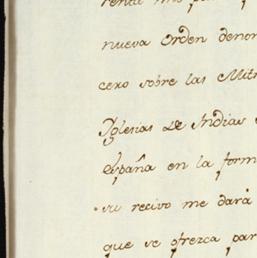 nueva Orden denom
cero sobre las Mitr
Yglesias de Indias
España en la form
su recivo me dará
que se ofrezca par